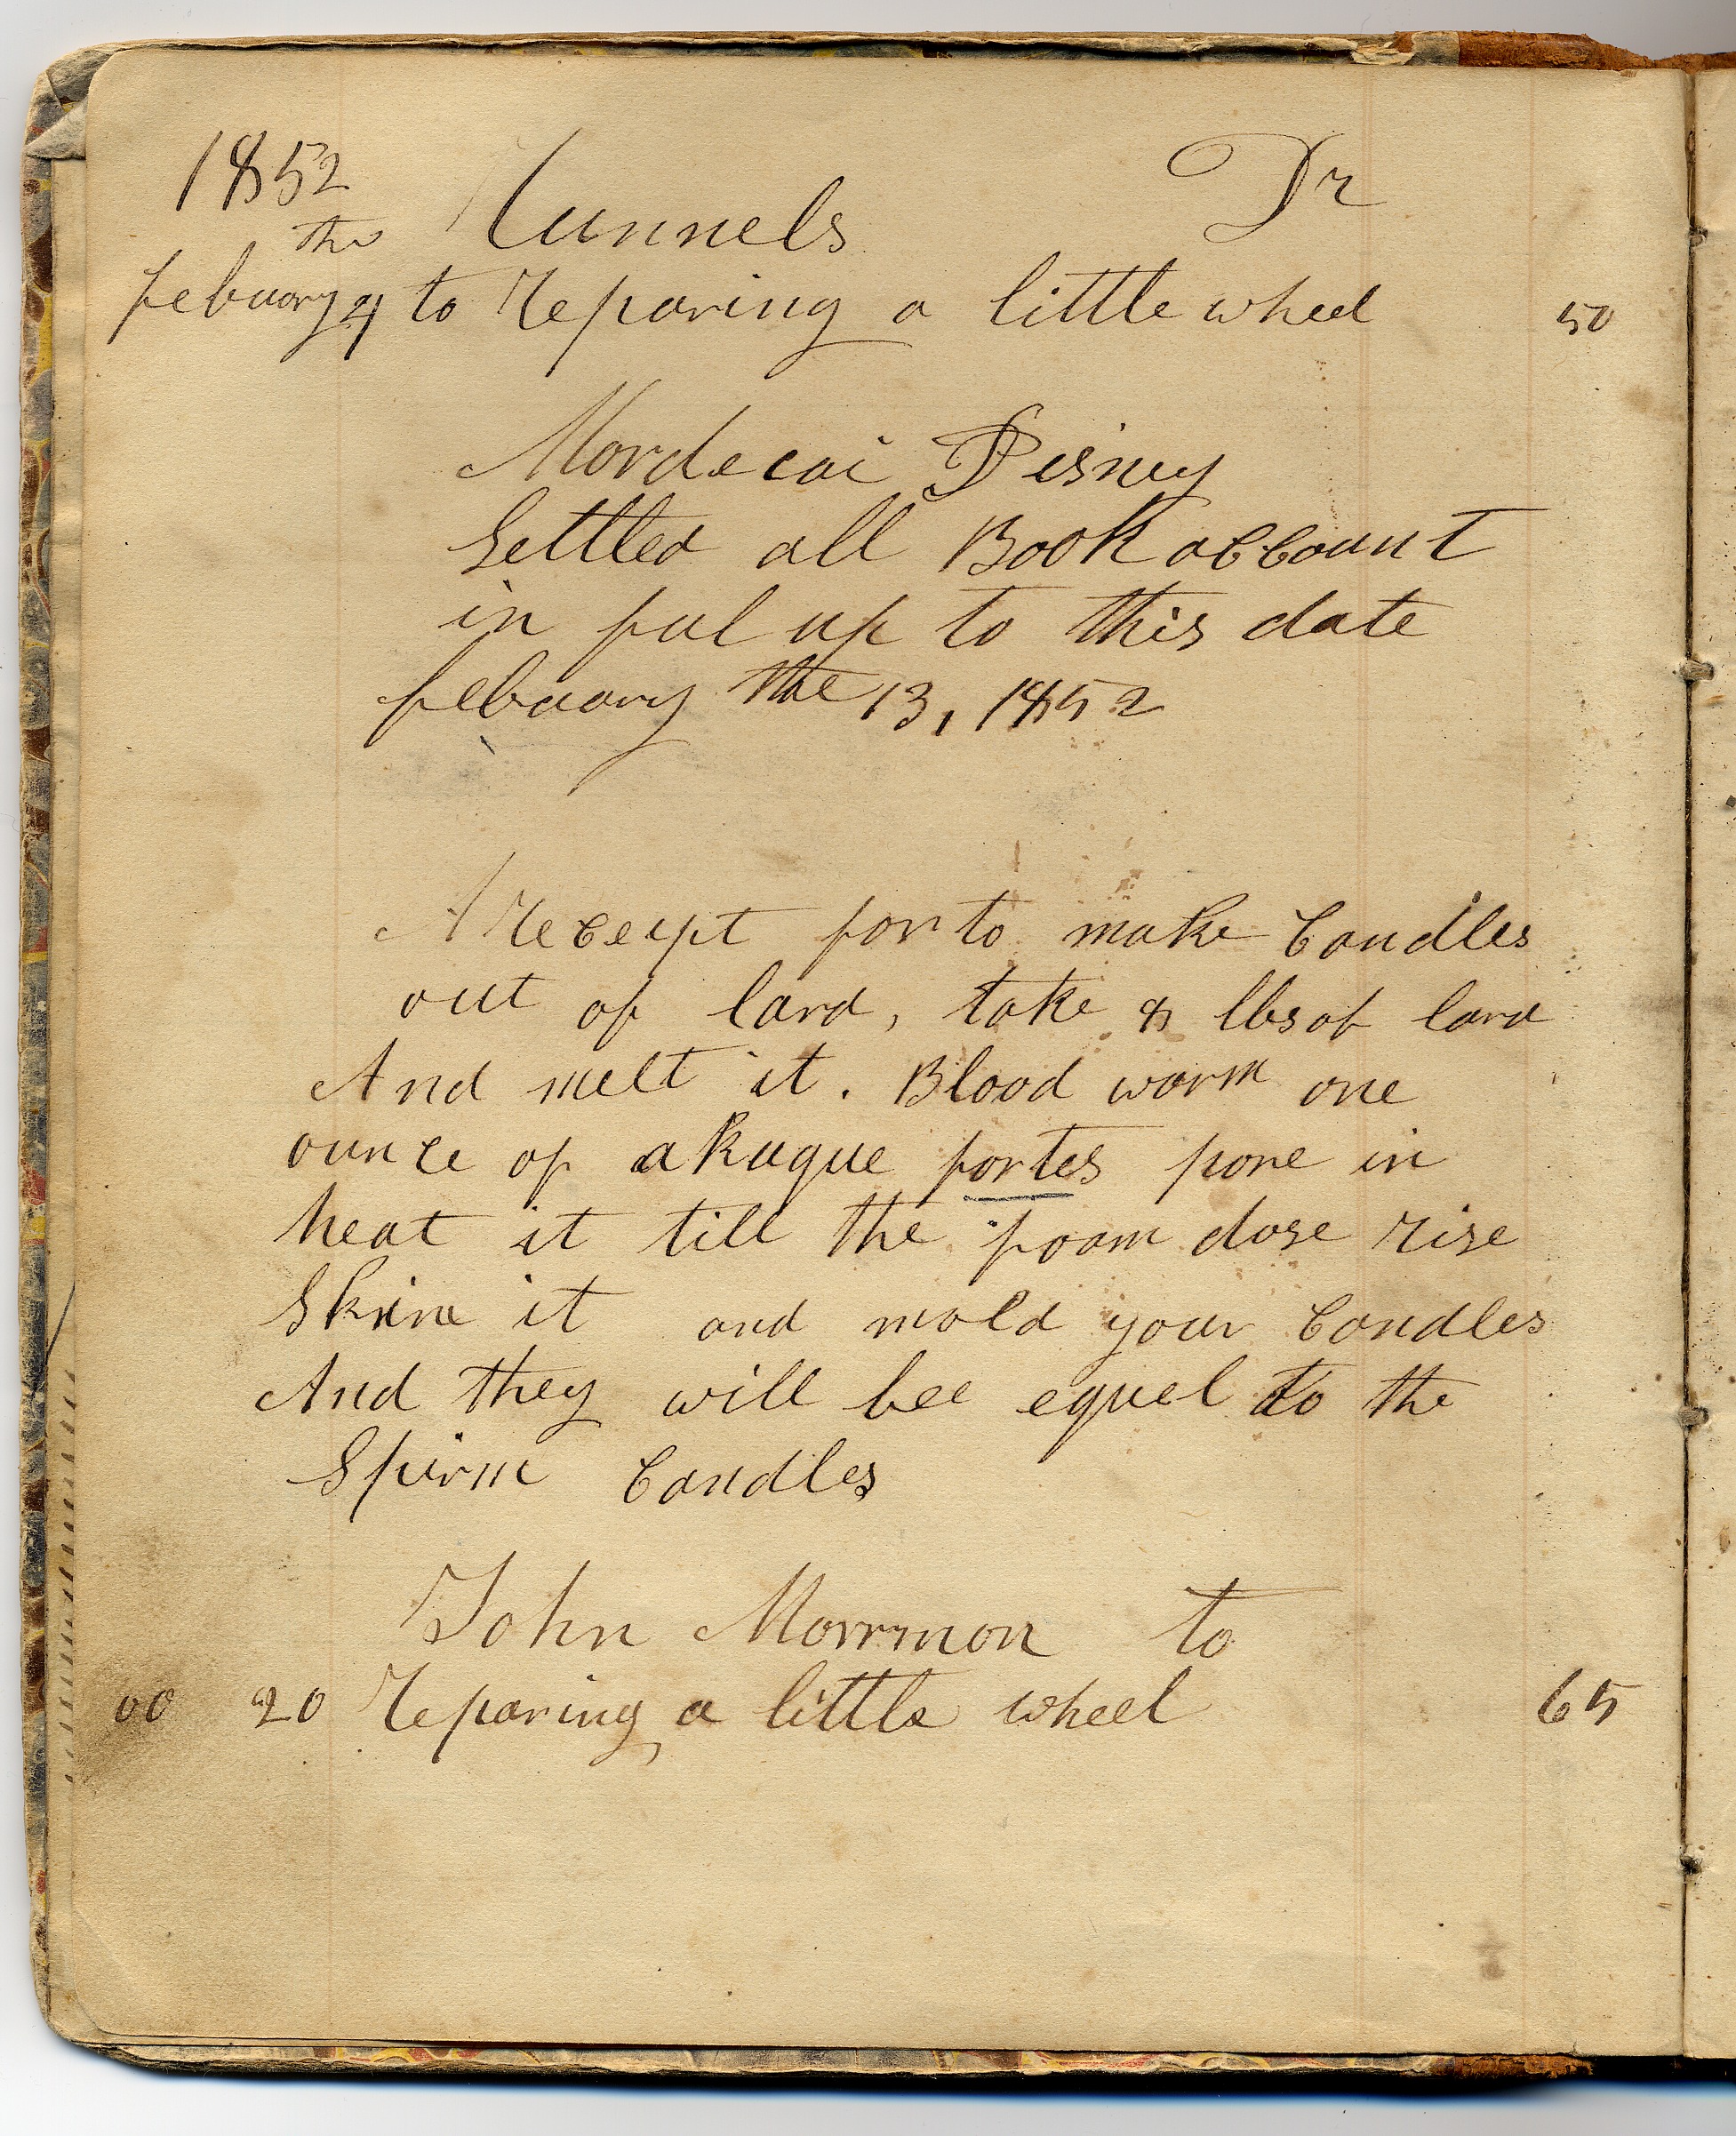 1852 Runnels Dr
the
febuary 9 to Reparing a little wheel 50
Mordecai Disney
Settled all Book account
in ful up to this date
febuary the 13, 1852
A Receipt for to make Candles
out of lard, take 8 lbs of lard
And melt it. Blood warm one
ounce of akuque fortes pore in
heat it till the foam dose rise
Skim it and mold your Candles
And they will bee equel to the
Spirm Candles
John Morrmon to
00 20 Reparing a little wheel 65